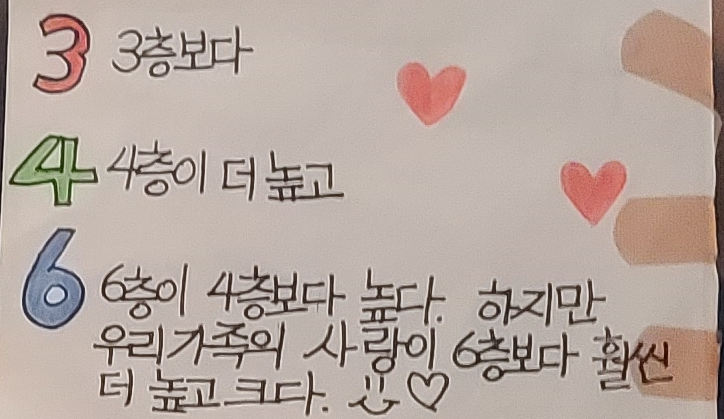 3 3층보다
4 4층이 더 높고
6 6층이 4층보다 높다. 하지만
우리가족의 사랑이 6층보다 훨씬
더 높고 크다.